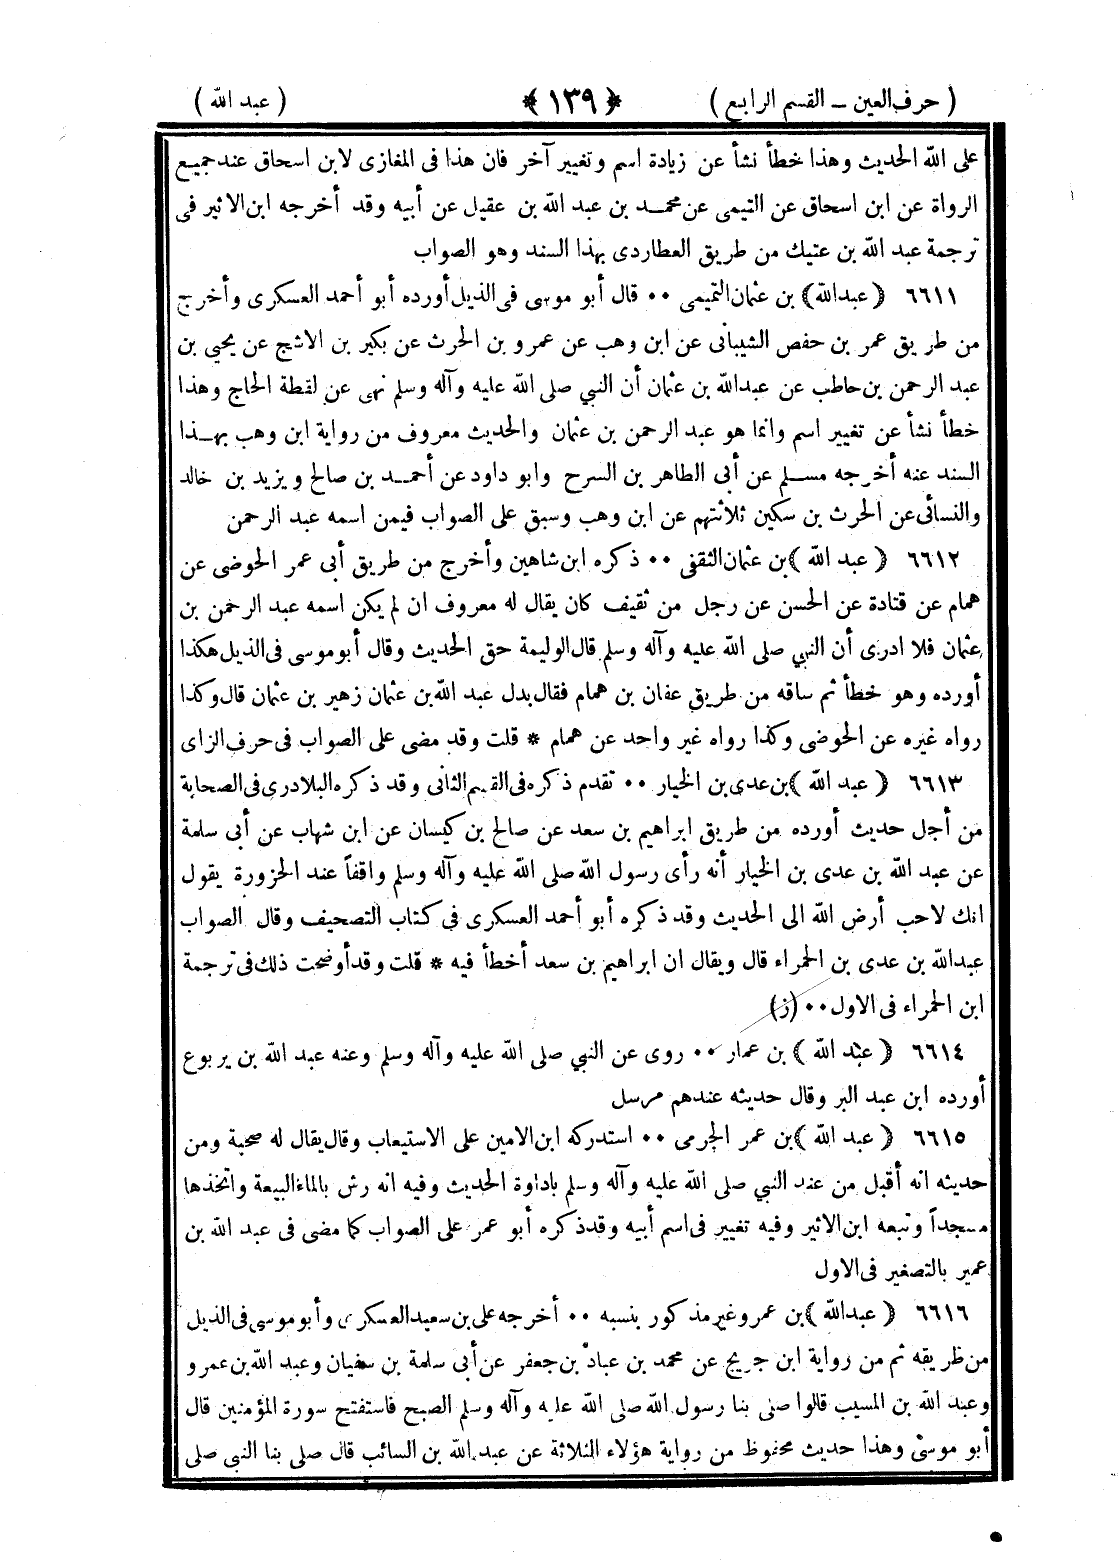 ( حرف العين – القسم الرابع ) ﴿ ١٣٩ ﴾ ( عبد الله )
على الله الحديث وهذا خطأ نشأ عن زيادة اسم وتغيير آخر فان هذا فى المغازى لابن اسحاق عند جميع
الرواة عن ابن اسحاق عن التيمى عن محمد بن عبد الله بن عقيل عن أبيه وقد أخرجه ابن الاثير فى
ترجمة عبد الله بن عتيك من طريق العطاردى بهذا السند وهو الصواب
٦٦١١ ( عبد الله ) بن عثمان التميمى ٠٠ قال أبو موسى فى الذيل أورده أبو أحمد العسكرى وأخرج
من طريق عمر بن حفص الشيبانى عن ابن وهب عن عمرو بن الحرث عن بكير بن الاشج عن يحيى بن
عبد الرحمن بن حاطب عن عبد الله بن عثمان أن النبي صلى الله عليه وآله وسلم نهى عن لقطة الحاج وهذا
خطأ نشأ عن تغيير اسم وانما هو عبد الرحمن بن عثمان والحديث معروف من رواية ابن وهب بهذا
السند عنه أخرجه مسلم عن أبى الطاهر بن السرح وابو داود عن أحمد بن صالح ويزيد بن خالد
والنسائى عن الحرث بن سكين ثلاثتهم عن ابن وهب وسبق على الصواب فيمن اسمه عبد الرحمن
٦٦١٢ ( عبد الله ) بن عثمان الثقفى ٠٠ ذكره ابن شاهين وأخرج من طريق أبى عمر الحوضى عن
همام عن قتادة عن الحسن عن رجل من ثقيف كان يقال له معروف ان لم يكن اسمه عبد الرحمن بن
عثمان فلا ادرى أن النبي صلى الله عليه وآله وسلم قال الوليمة حق الحديث وقال أبو موسى فى الذيل هكذا
أورده وهو خطأ ثم ساقه من طريق عفان بن همام فقال بدل عبد الله بن عثمان زهير بن عثمان قال وكذا
رواه غيره عن الحوضى وكذا رواه غير واحد عن همام * قلت وقد مضى على الصواب فى حرف الزاى
٦٦١٣ ( عبد الله ) بن عدى بن الخيار ٠٠ تقدم ذكره فى القسم الثانى وقد ذكره البلادرى فى الصحابة
من أجل حديث أورده من طريق ابراهيم بن سعد عن صالح بن كيسان عن ابن شهاب عن أبى سلمة
عن عبد الله بن عدى بن الخيار أنه رأى رسول الله صلى الله عليه وآله وسلم واقفاً عند الحزورة يقول
انك لاحب أرض الله الى الحديث وقد ذكره أبو أحمد العسكرى فى كتاب التصحيف وقال الصواب
عبد الله بن عدى بن الحمراء قال ويقال ان ابراهيم بن سعد أخطأ فيه * قلت وقد أوضحت ذلك فى ترجمة
ابن الحمراء فى الاول ٠٠ (ز)
٦٦١٤ ( عبد الله ) بن عمار ٠٠ روى عن النبي صلى الله عليه وآله وسلم وعنه عبد الله بن يربوع
أورده ابن عبد البر وقال حديثه عندهم مرسل
٦٦١٥ ( عبد الله ) بن عمر الجرمى ٠٠ استدركه ابن الامين على الاستيعاب وقال يقال له صحبة ومن
حديثه انه أقبل من عند النبي صلى الله عليه وآله وسلم باداوة الحديث وفيه انه رش بالماء البيعة واتخذها
مسجداً وتبعه ابن الاثير وفيه تغيير فى اسم أبيه وقد ذكره أبو عمر على الصواب كما مضى فى عبد الله بن
عمير بالتصغير فى الاول
٦٦١٦ ( عبد الله ) بن عمرو غير مذكور بنسبه ٠٠ أخرجه على بن سعيد العسكرى وأبو موسى فى الذيل
من طريقه ثم من رواية ابن جريج عن محمد بن عباد بن جعفر عن أبى سلمة بن سفيان وعبد الله بن عمرو
وعبد الله بن المسيب قالوا صلى بنا رسول الله صلى الله عليه وآله وسلم الصبح فاستفتح سورة المؤمنين قال
أبو موسى وهذا حديث محفوظ من رواية هؤلاء الثلاثة عن عبد الله بن السائب قال صلى بنا النبي صلى